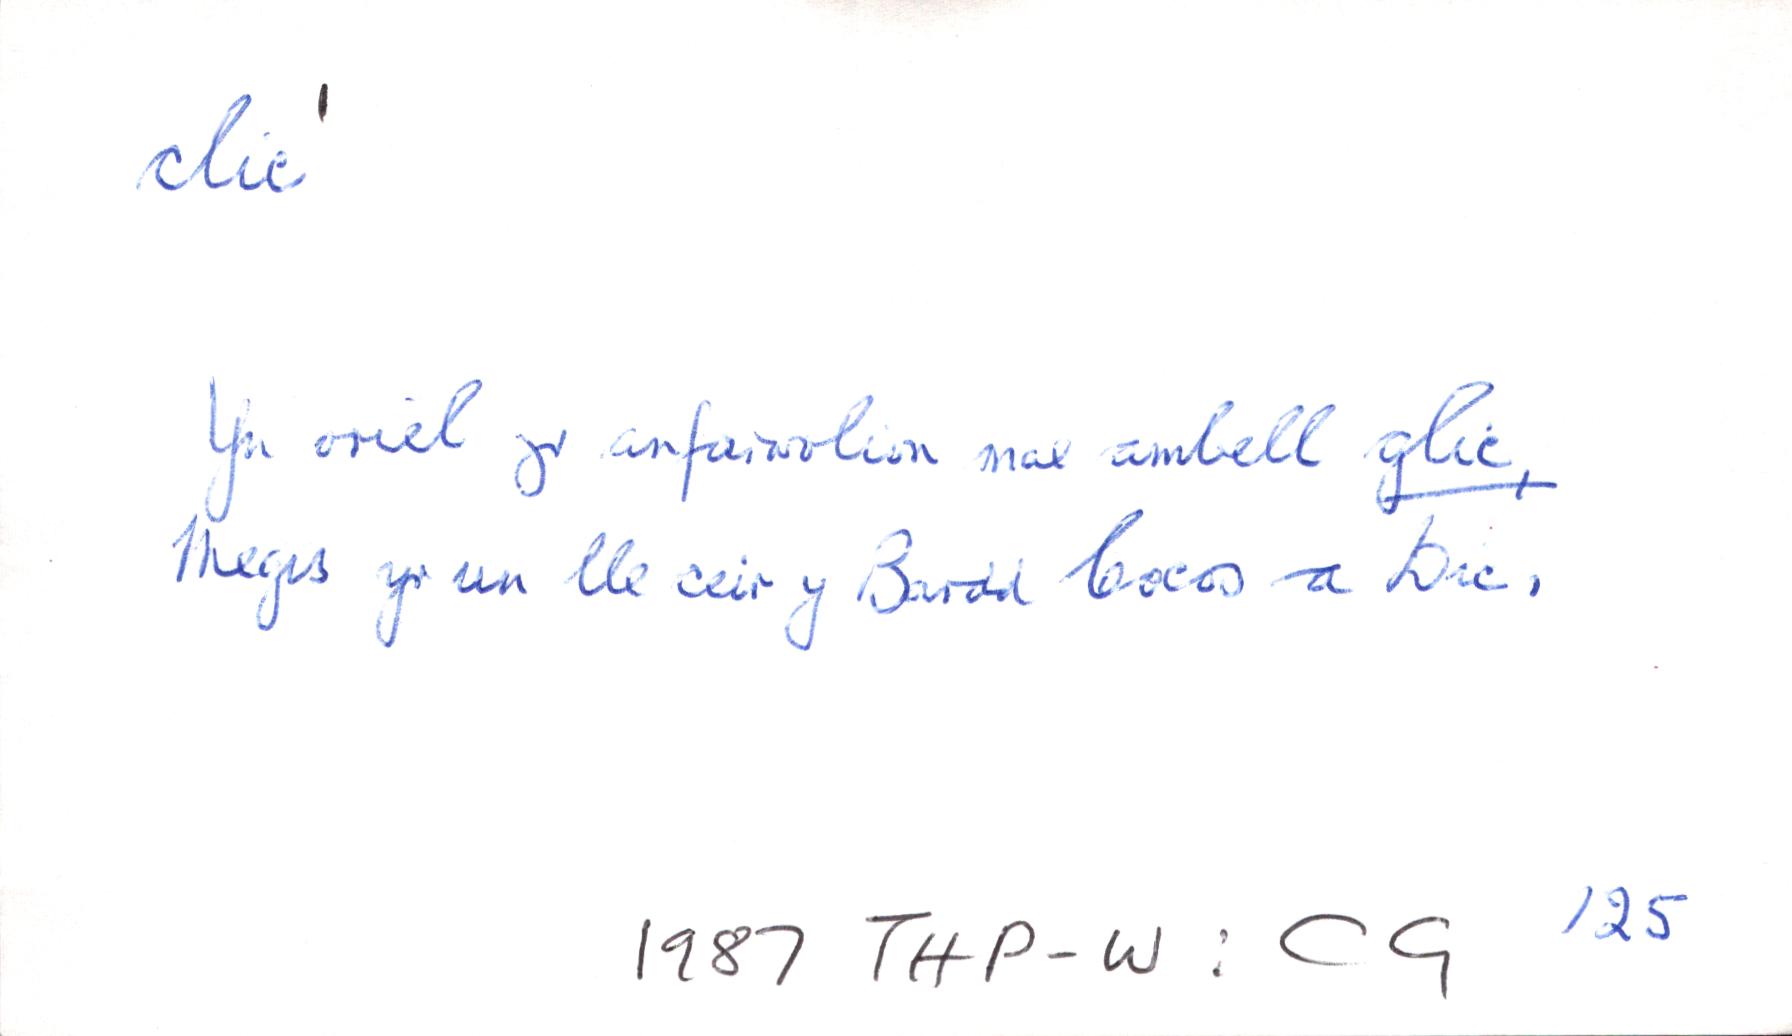 clic'
Yn oriel yr anfarwolion mae ambell glic,
Megis yr un lle ceir y Bardd Cocos a Dic.
1987 THP-W : CG 125